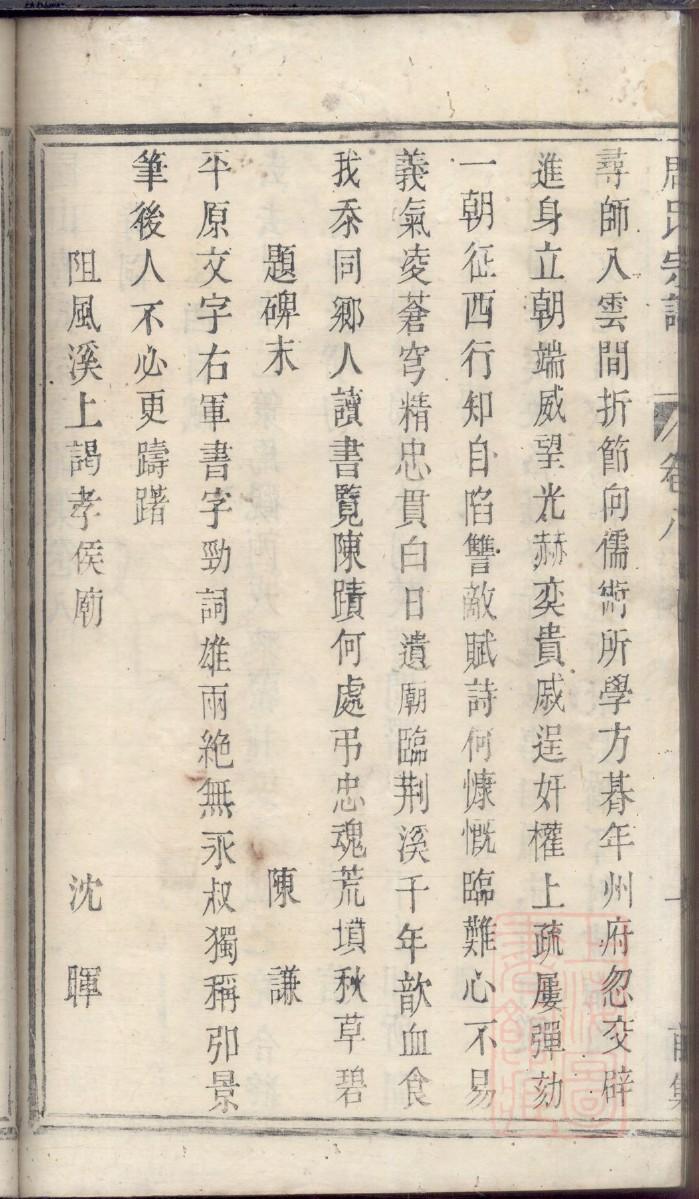 周氏宗譜 卷八 前集
尋師入雲間折節向儒術所學方朞年州府忽交辟
進身立朝端威望光赫奕貴戚逞奸權上疏屢彈劾
一朝征西行知自陷讐敵賦詩何慷慨臨難心不易
義氣凌蒼穹精忠貫白日遺廟臨荆溪千年歆血食
我忝同鄉人讀書覽陳蹟何處弔忠魂荒墳秋草碧
題碑末 陳謙
平原文字右軍書字勁詞雄兩絶無永叔獨稱卭景
筆後人不必更躊躇
阻風溪上謁孝侯廟 沈暉